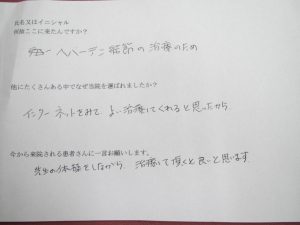 氏名又はイニシャル
何故ここに来たんですか？
ヘバーデン結節の治療のため
他にたくさんある中でなぜ当院を選ばれましたか？
インターネットをみて、よい治療してくれると思ったから
今から来院される患者さんに一言お願いします。
先生の体験をしながら、治療して頂くと良いと思います